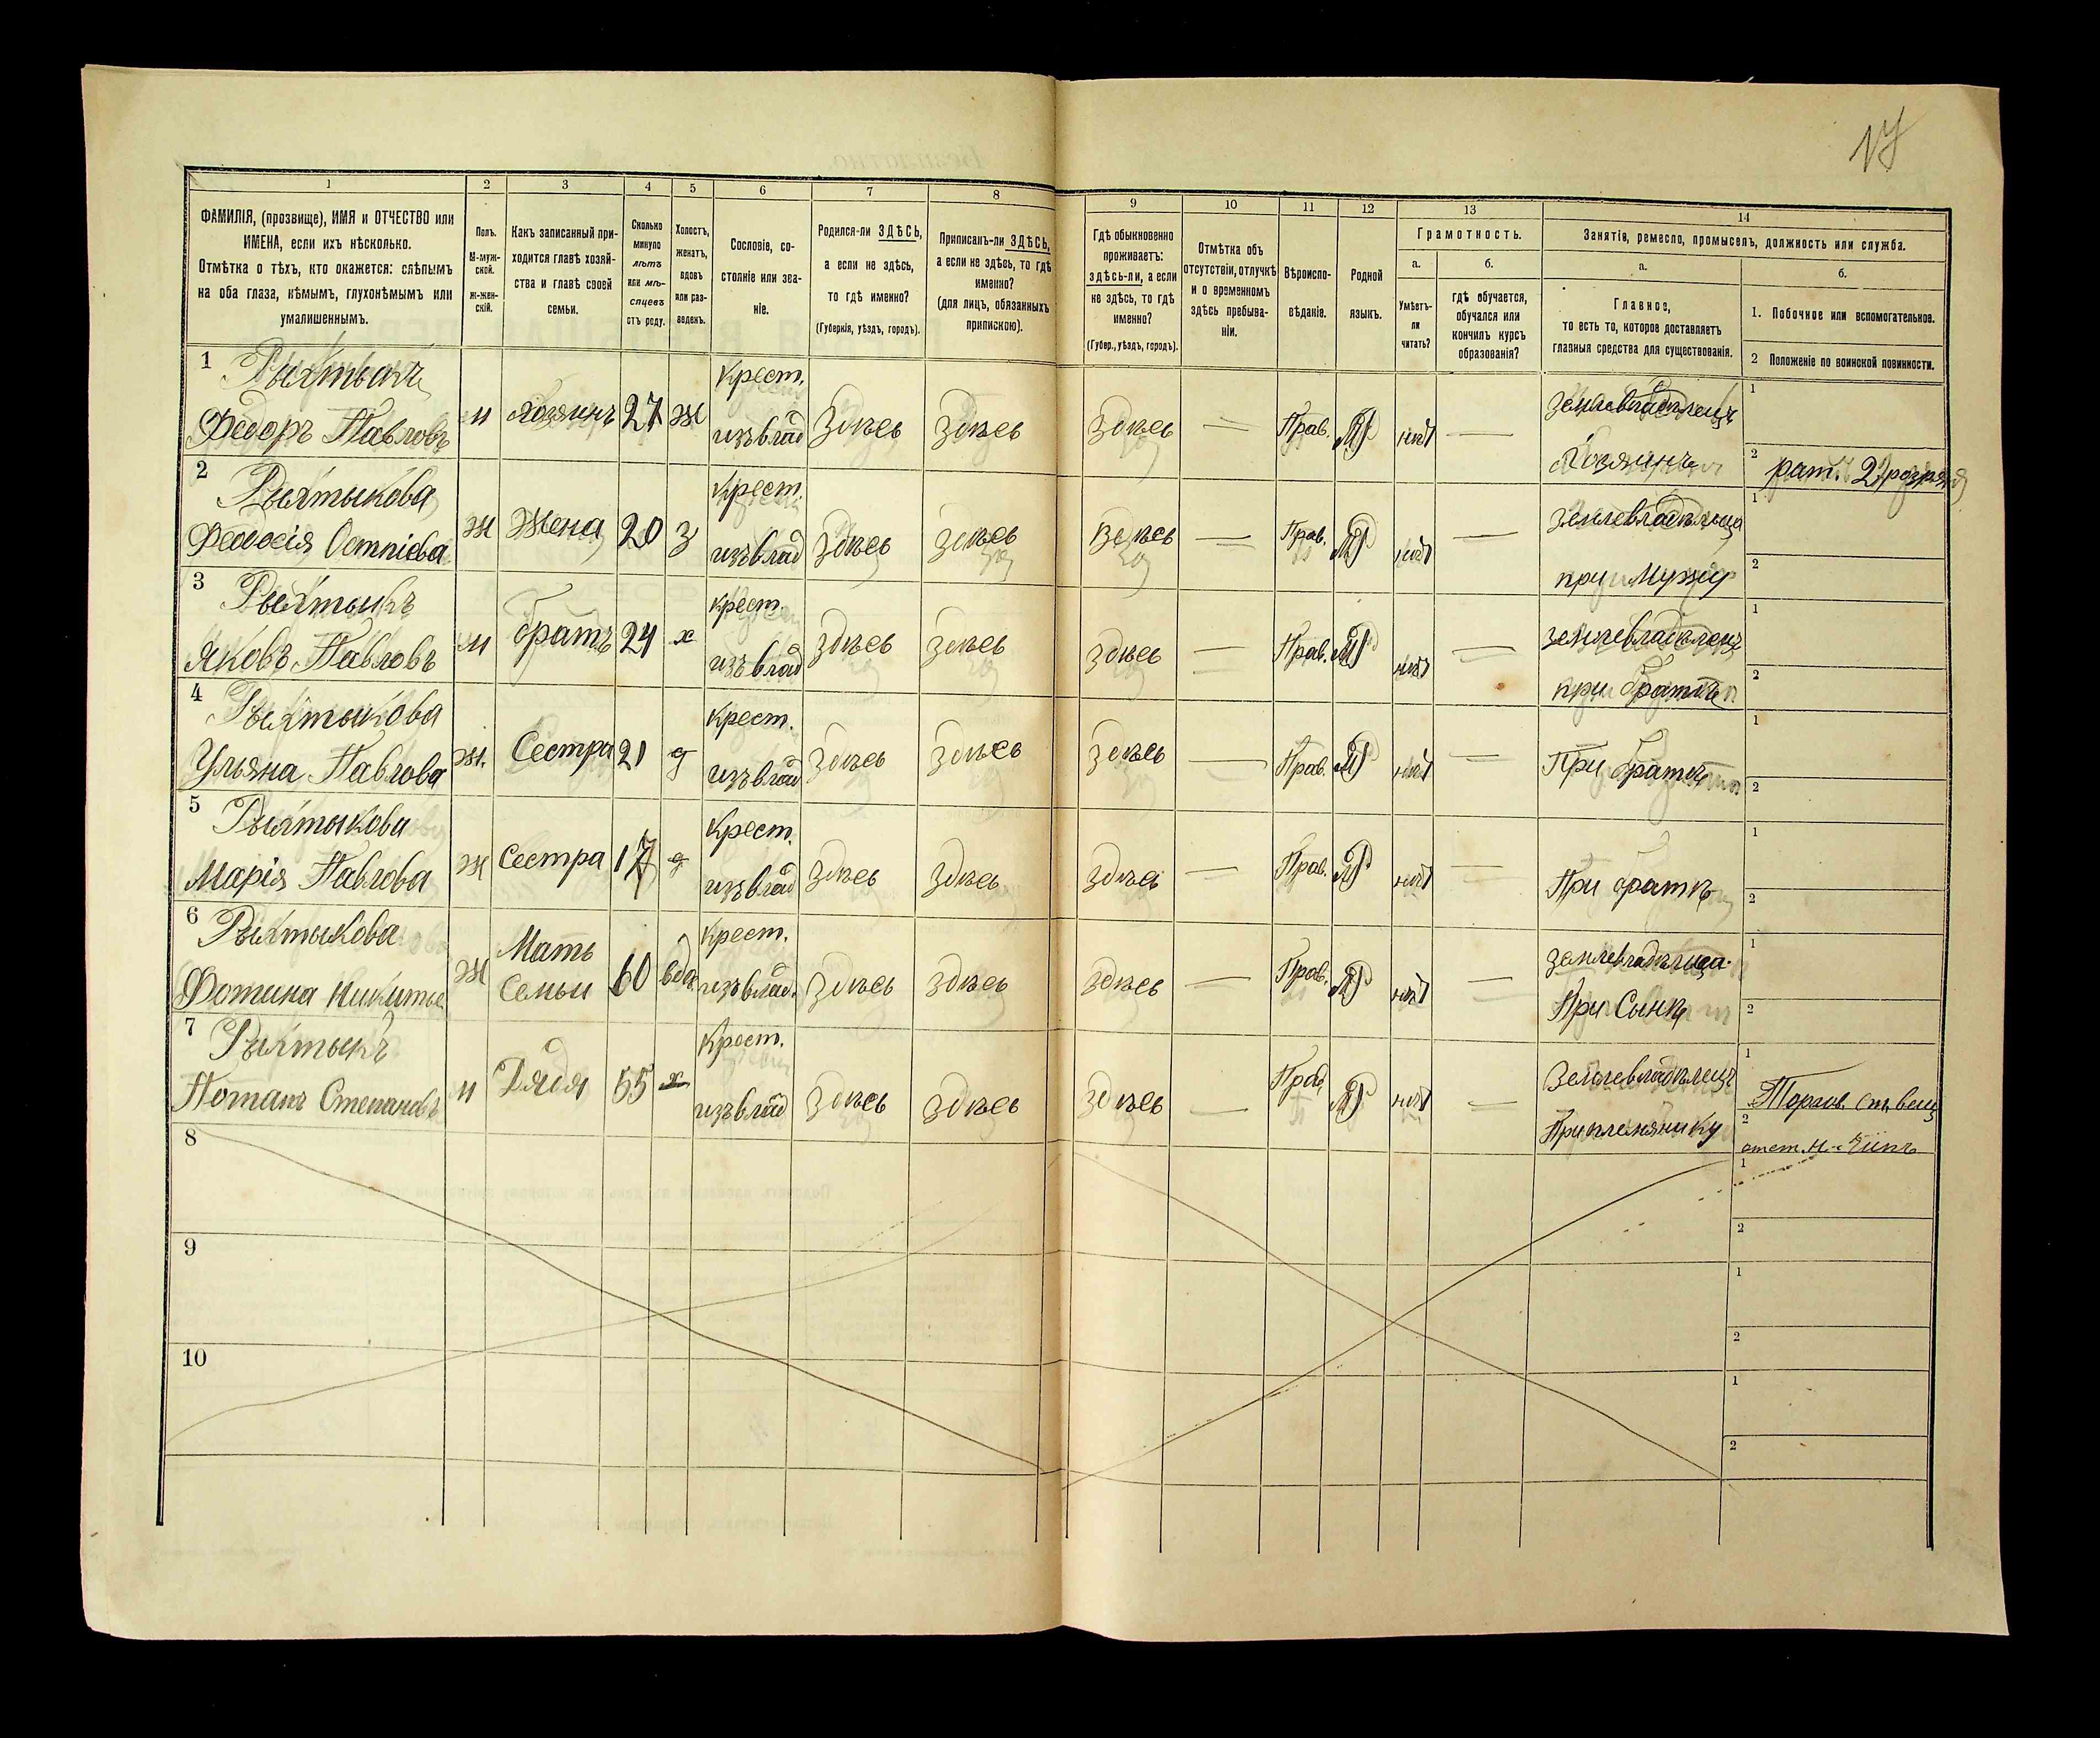 17
1 2 3 4 5 6 7 8 9 10 11 12 13 14
ФАМИЛІЯ, (прозвище), ИМЯ и ОТЧЕСТВО или
ИМЕНА, если ихъ нѣсколько.
Отмѣтка о тѣхъ, кто окажется: слѣпымъ
на оба глаза, нѣмымъ, глухонѣмымъ или
умалишеннымъ.
Полъ.
М-муж-
ской.
Ж-жен-
скій.
Какъ записанный при-
ходится главѣ хозяй-
ства и главѣ своей
семьи.
Сколько
минуло
лѣтъ
или мѣ-
сяцевъ
отъ роду.
Холостъ,
женатъ,
вдовъ
или раз-
веденъ.
Сословіе, со-
стояніе или зва-
ніе.
Родился-ли ЗДѢСЬ,
а если не здѣсь,
то гдѣ именно?
(Губернія, уѣздъ, городъ).
Приписанъ-ли ЗДѢСЬ,
а если не здѣсь, то гдѣ
именно?
(для лицъ, обязанныхъ
припискою).
Гдѣ обыкновенно
проживаетъ:
здѣсь-ли, а если
не здѣсь, то гдѣ
именно?
(Губер., уѣздъ, городъ).
Отмѣтка объ
отсутствіи, отлучкѣ
и о временномъ
здѣсь пребыва-
ніи.
Вѣроиспо-
вѣданіе.
Родной
языкъ.
Грамотность.
а.
Умѣетъ-
ли
читать?
б.
гдѣ обучается,
обучался или
кончилъ курсъ
образованія?
Занятіе, ремесло, промыселъ, должность или служба.
а.
Главное,
то есть то, которое доставляетъ
главныя средства для существованія.
б.
1. Побочное или вспомогательное.
2 Положеніе по воинской повинности.
1 Рыхтыкъ крест. землевладѣлецъ 1
Федоръ Павловъ м хозяинъ 27 ж изъ влад Здѣсь Здѣсь Здѣсь — Прав. нѣт —
Хозяинъ 2 рат. 2 розряд
2 Рыхтыкова крест. землевладѣлица 1
Феодосія ж Жена 20 з изъ влад Здѣсь Здѣсь Здѣсь — Прав. нѣт —
при мужу 2
3 Рыхтыкъ крест. землевладѣлецъ 1
Яковъ Павловъ м братъ 24 х изъ влад Здѣсь Здѣсь Здѣсь — Прав. нѣт —
при братѣ 2
4 Рыхтыкова крест. 1
Ульяна Павлова ж. Сестра 21 д изъ влад Здѣсь Здѣсь Здѣсь — Прав. нѣт — При братѣ 2
5 Рыхтыкова крест. 1
Марія Павлова ж Сестра 17 д изъ влад Здѣсь Здѣсь Здѣсь — Прав. нѣт — При братѣ 2
6 Рыхтыкова Мать крест. землевладѣлица. 1
Фотина ж Семьи 60 вда изъ влад. Здѣсь Здѣсь Здѣсь — Прав. нѣт — При Сынѣ 2
7 Рыхтыкъ крест. Землевладѣлецъ 1
Потапъ Степановъ м Дядя 55 х изъ влад Здѣсь Здѣсь Здѣсь — Прав нѣт — При племянику 2
8 1
2
9 1
2
10 1
2